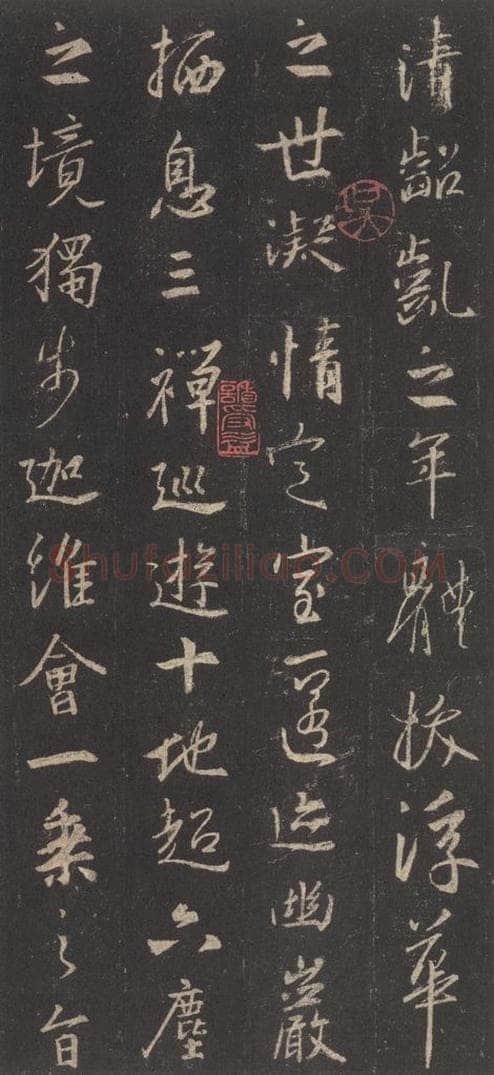 清齠齔之年體拔浮華
之世凝情定室匿迹幽巖
栖息三禪巡遊十地超六塵
之境獨步迦維會一乘之旨
Shufaziliao.com